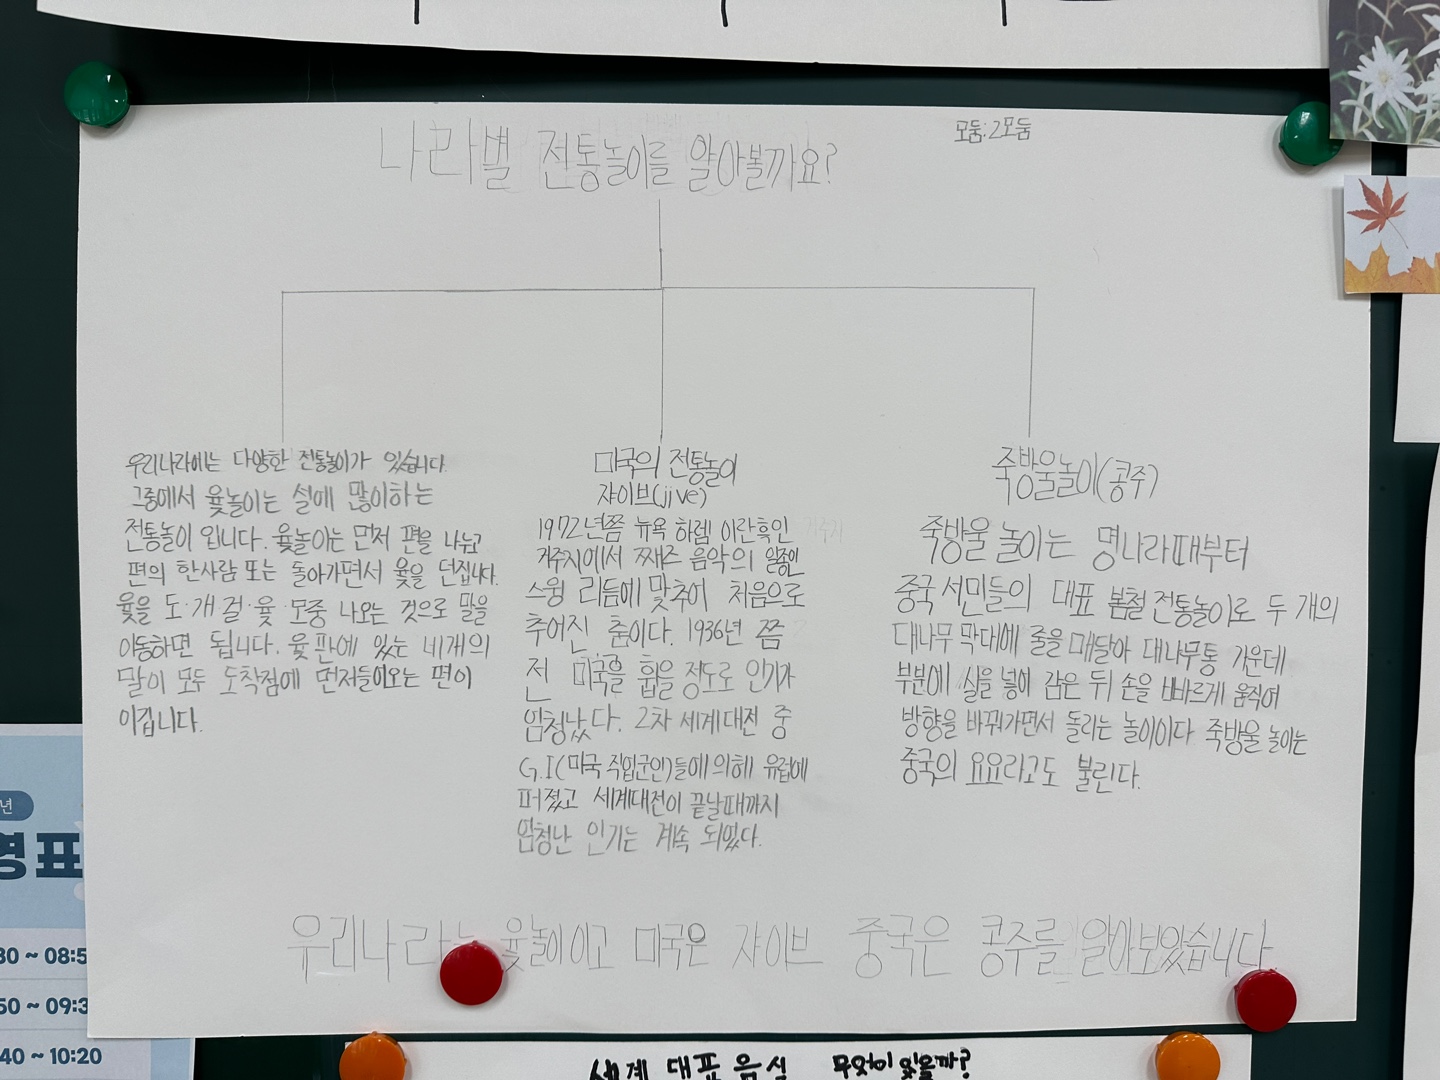 나라별 전통놀이를 알아볼까요?
모둠:2모둠
우리나라에는 다양한 전통놀이가 있습니다.
그중에서 윷놀이는 설에 많이하는
전통놀이 입니다. 윷놀이는 먼저 편을 나누고
편의 한사람 또는 돌아가면서 윷을 던집니다.
윷을 도·개·걸·윷·모중 나오는 것으로 말을
이동하면 됩니다. 윷판에 있는 네개의
말이 모두 도착점에 먼저들어오는 편이
이깁니다.
미국의 전통놀이
쟈이브(jive)
1972년쯤 뉴욕 하렘 이란흑인
거주지에서 째즈 음악의 일종인
스윙 리듬에 맞추어 처음으로
추어진 춤이다. 1936년 쯤
전 미국을 휩을 정도로 인기가
엄청났다. 2차 세계대전 중
G.I(미국 직업군인)들에 의해 유럽에
퍼졌고 세계대전이 끝날때까지
엄청난 인기는 계속 되었다.
죽방울놀이(콩주)
죽방울 놀이는 명나라때부터
중국 서민들의 대표 봄철 전통놀이로 두 개의
대나무 막대에 줄을 매달아 대나무통 가운데
부분에 실을 넣어 감은 뒤 손을 빠르게 움직여
방향을 바꿔가면서 돌리는 놀이이다 죽방울 놀이는
중국의 요요라고도 불린다.
우리나라는 윷놀이이고 미국은 쟈이브 중국은 콩주를 알아보았습니다
년
영표
30 ~ 08:5
50 ~ 09:3
40 ~ 10:20
세계 대표 음식 무엇이 있을까?